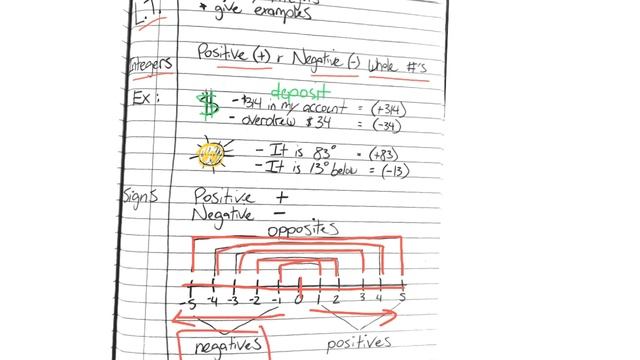 L.T. * give examples
Integers Positive (+) Negative (-) whole #'s
deposit
Ex: $ - $314 in my account = (+314)
- overdrew $34 = (-34)
- It is 83° = (+83)
- It is 13° below = (-13)
Signs Positive +
Negative -
opposites
-5 -4 -3 -2 -1 0 1 2 3 4 5
negatives positives